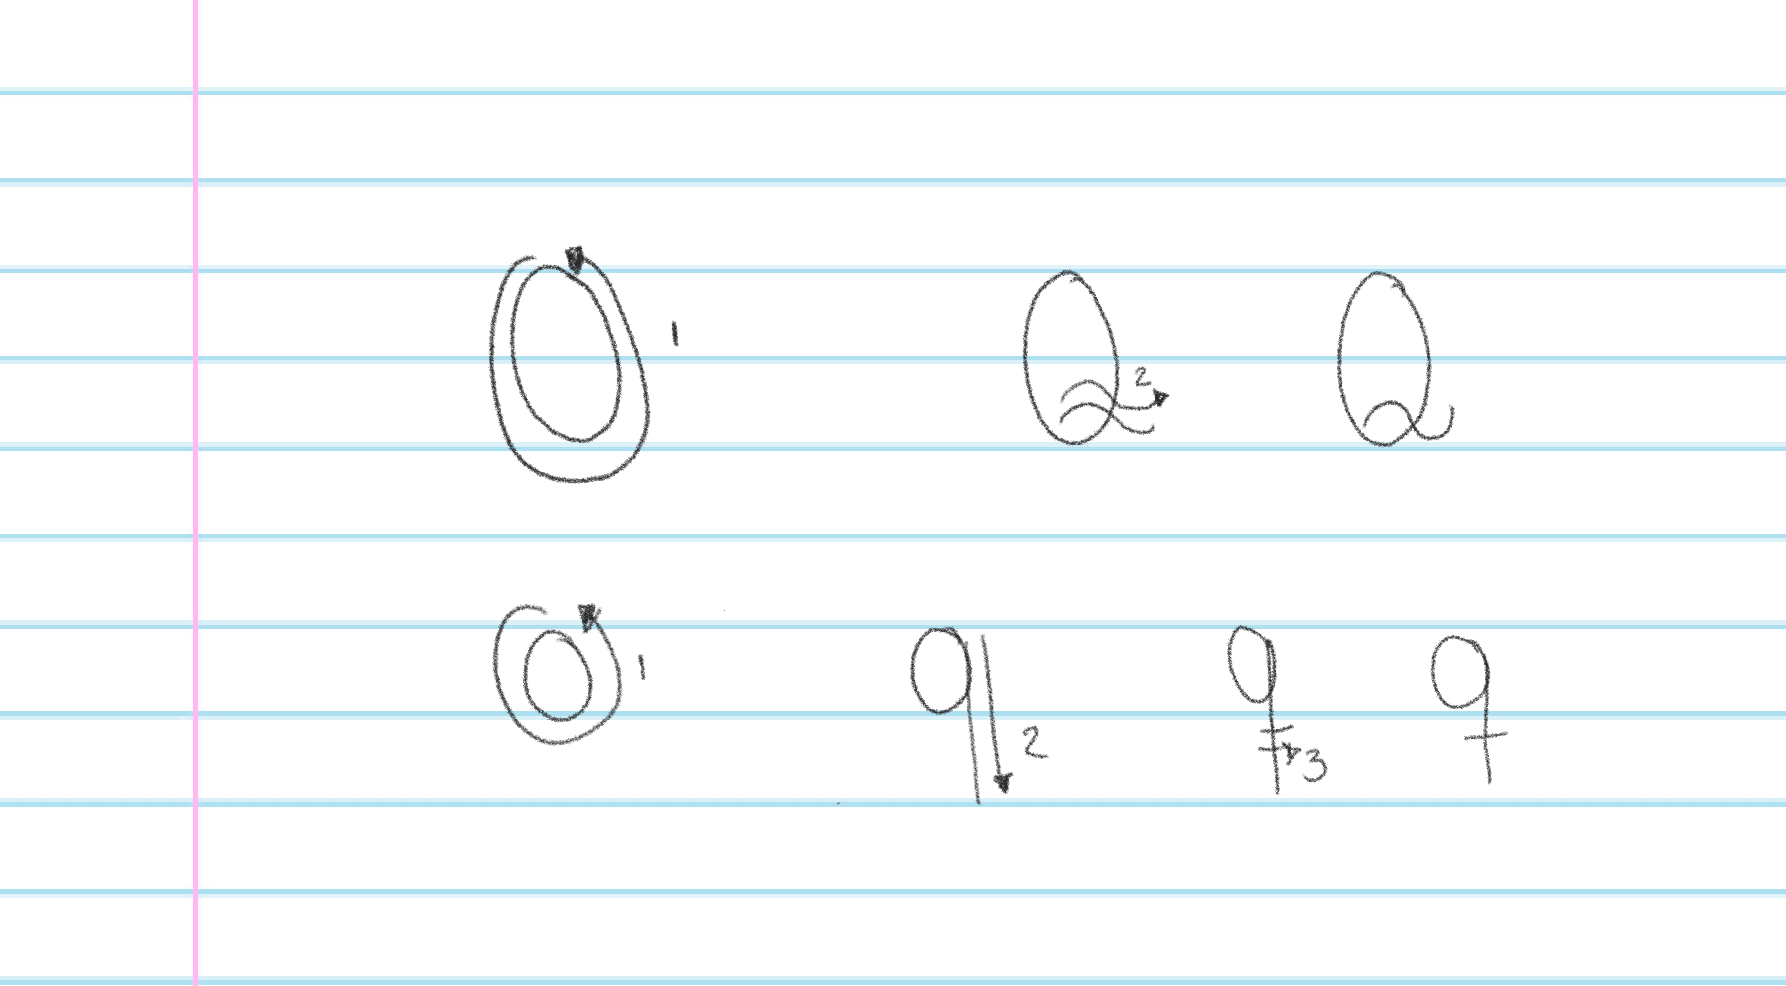 O 1 Q 2 Q
o 1 q 2 q 3 q